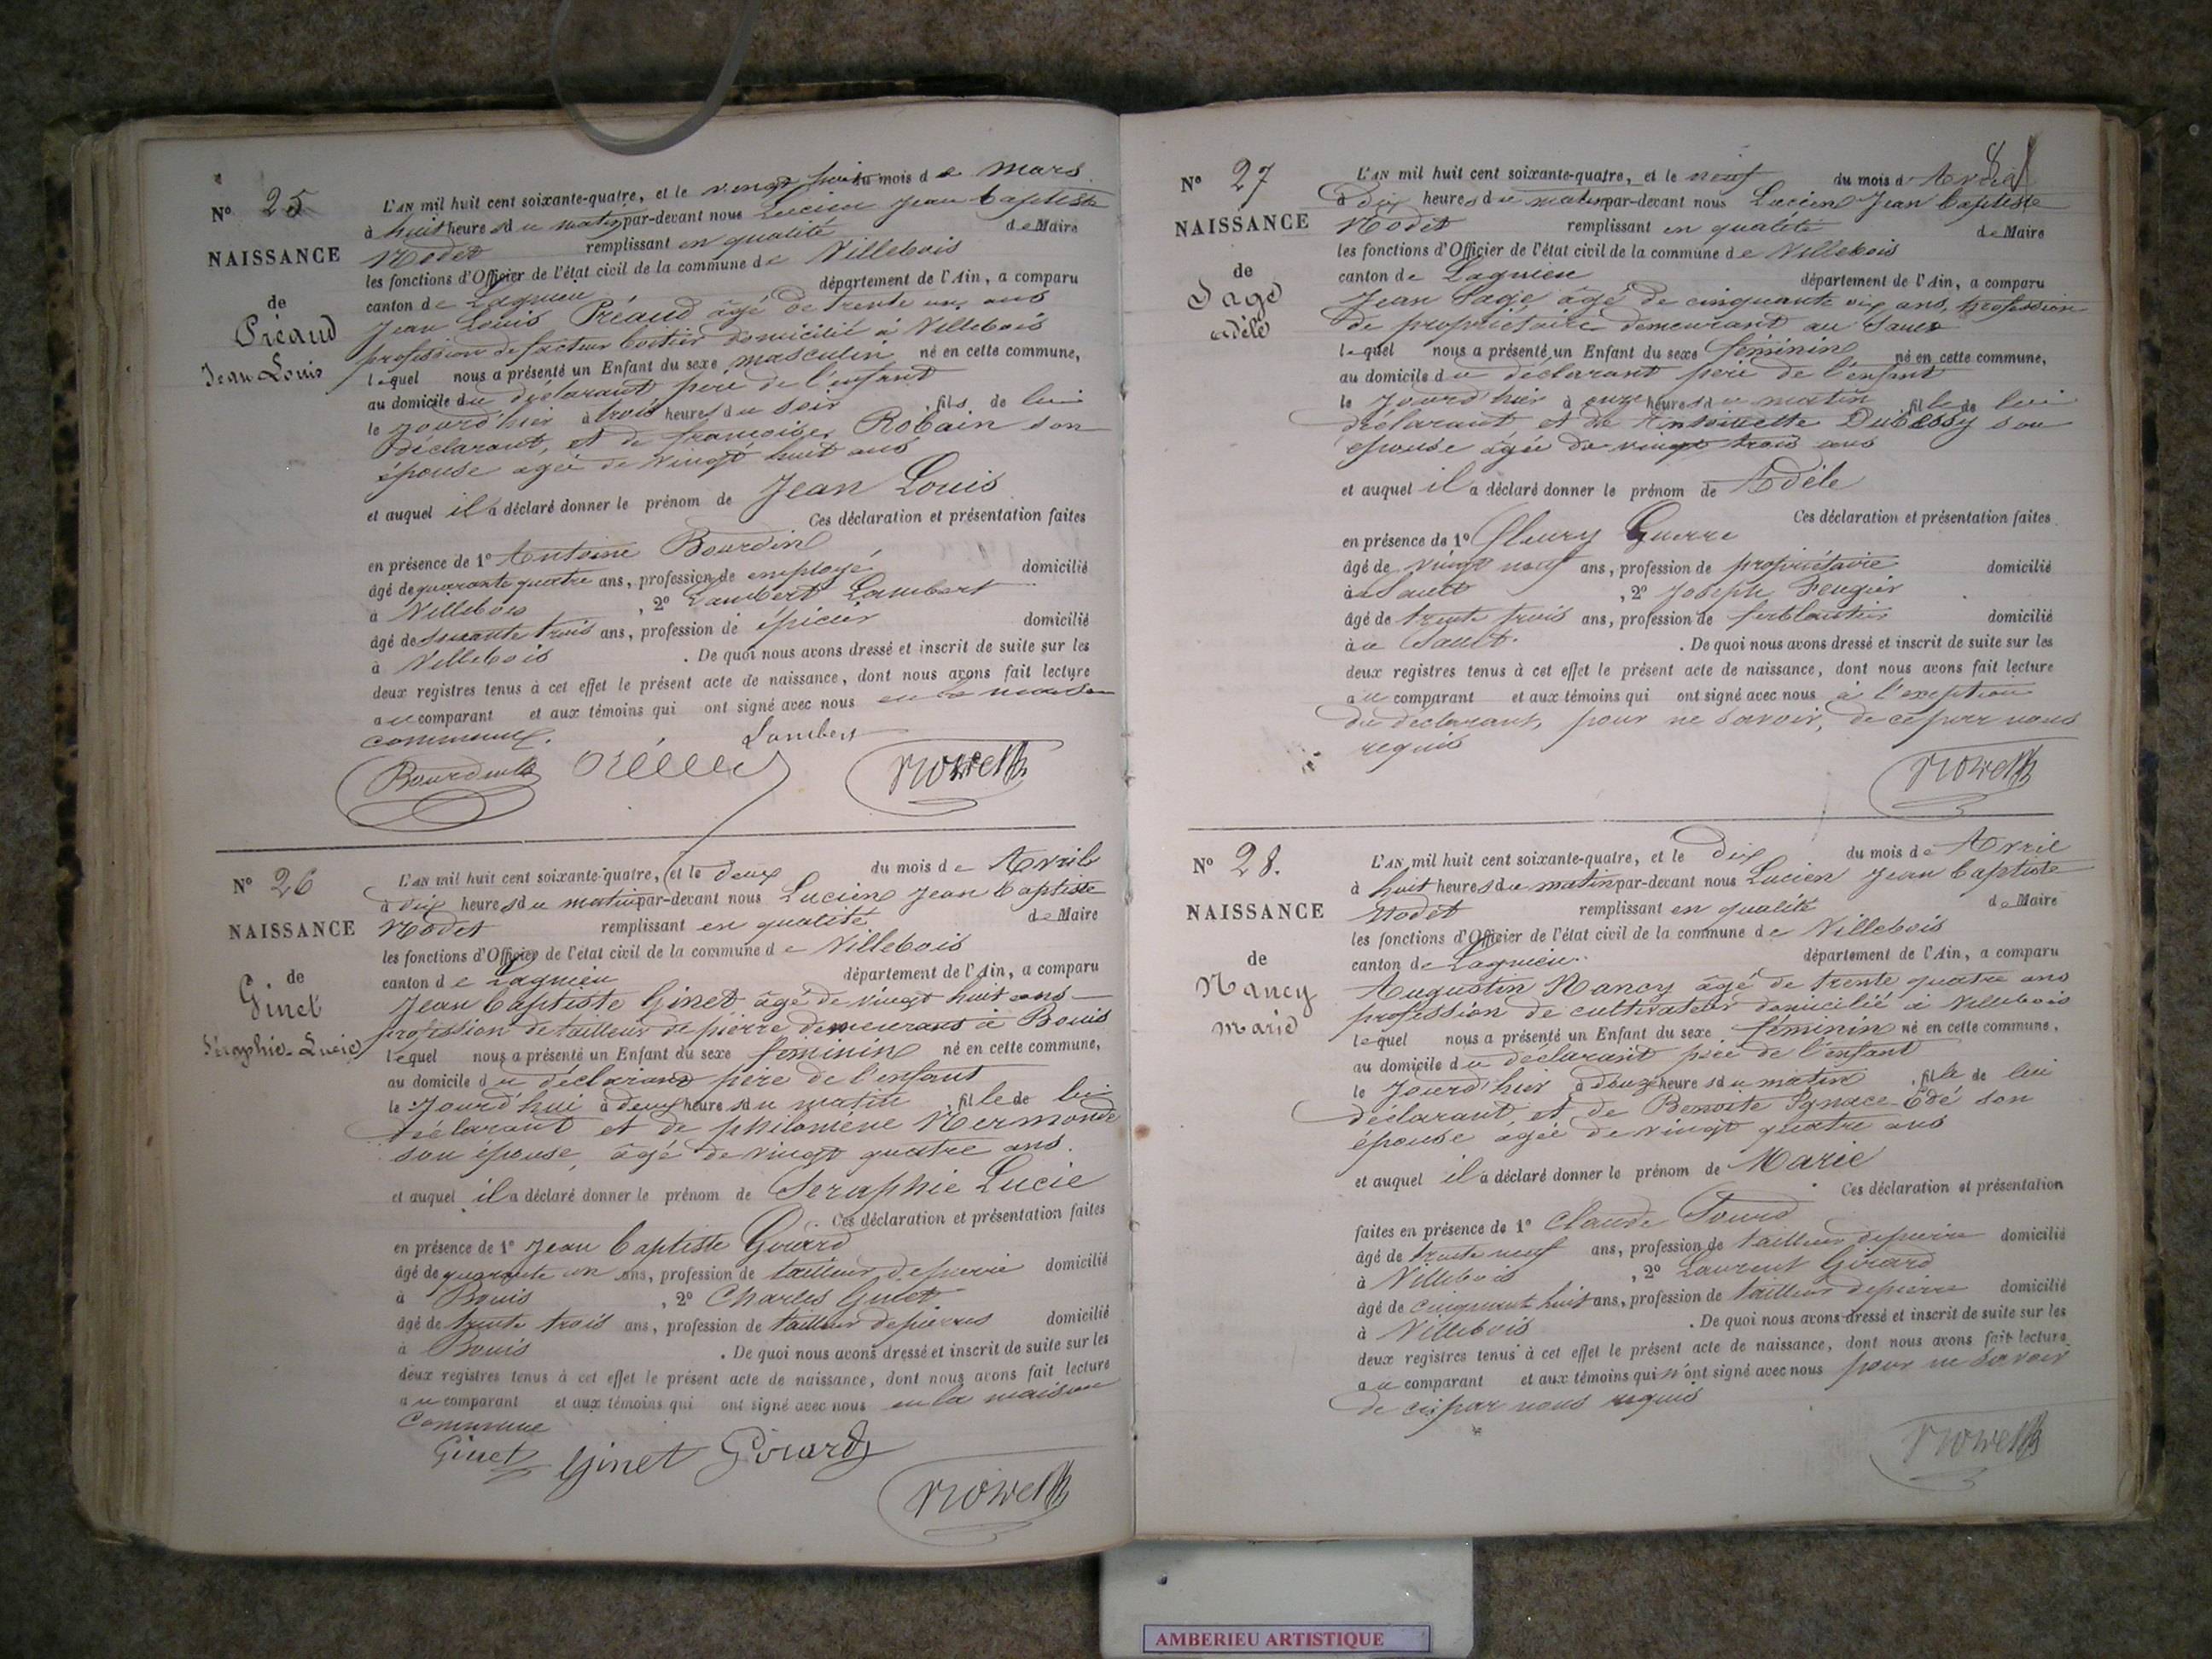 N° 25
NAISSANCE
de
Préaud
Jean Louis
L'AN mil huit cent soixante-quatre, et le vingt huit du mois de Mars
à huit heures du matin par-devant nous Lucien Jean Baptiste
Nodet remplissant en qualité de Maire
les fonctions d'Officier de l'état civil de la commune de Villebois
canton de Lagnieu département de l'Ain, a comparu
Jean Louis Préaud âgé de trente ans
profession de facteur boitier domicilié à Villebois
lequel nous a présenté un Enfant du sexe masculin né en cette commune,
au domicile du déclarant père de l'enfant
le jourd'hier à trois heures du soir, fils de lui
déclarant, et de françoise Robain son
épouse agée de vingt huit ans
et auquel il a déclaré donner le prénom de Jean Louis
Ces déclaration et présentation faites
en présence de 1° Antoine Bourdin
âgé de quarante quatre ans, profession de employé domicilié
à Villebois, 2° Lambert Lambert
âgé de soixante trois ans, profession de épicier domicilié
à Villebois. De quoi nous avons dressé et inscrit de suite sur les
deux registres tenus à cet effet le présent acte de naissance, dont nous avons fait lecture
au comparant et aux témoins qui ont signé avec nous en la maison
commune.
Lambert
Bourdin
N° 26
NAISSANCE
de
Ginet
Séraphie-Lucie
L'AN mil huit cent soixante-quatre, et le deux du mois de Avril
à dix heures du matin par-devant nous Lucien Jean Baptiste
Nodet remplissant en qualité de Maire
les fonctions d'Officier de l'état civil de la commune de Villebois
canton de Lagnieu département de l'Ain, a comparu
Jean Baptiste Ginet âgé de vingt huit ans
profession de tailleur de pierre demeurant à Bouis
lequel nous a présenté un Enfant du sexe féminin né en cette commune,
au domicile du déclarant père de l'enfant
le jourd'hui à deux heures du matin, fille de lui
déclarant et de philomène Mermonde
son épouse, âgé de vingt quatre ans.
et auquel il a déclaré donner le prénom de Seraphie Lucie
Ces déclaration et présentation faites
en présence de 1° Jean Baptiste Girard
âgé de quarante un ans, profession de tailleur de pierre domicilié
à Bouis, 2° Charles Ginet
âgé de trente trois ans, profession de tailleur de pierres domicilié
à Bouis. De quoi nous avons dressé et inscrit de suite sur les
deux registres tenus à cet effet le présent acte de naissance, dont nous avons fait lecture
au comparant et aux témoins qui ont signé avec nous en la maison
Commune
Ginet Ginet Girard
N° 27
NAISSANCE
de
Sage
adèle
L'AN mil huit cent soixante-quatre, et le neuf du mois d'Avril
à dix heures du matin par-devant nous Lucien Jean Baptiste
Nodet remplissant en qualité de Maire
les fonctions d'Officier de l'état civil de la commune de Villebois
canton de Lagnieu département de l'Ain, a comparu
Jean Sage, âgé de cinquante six ans, profession
de propriétaire demeurant au Sault
lequel nous a présenté un Enfant du sexe féminin né en cette commune,
au domicile du déclarant père de l'enfant
le jourd'hier à onze heures du matin fille de lui
déclarant et de Antoinette Dubessy son
épouse âgée de vingt trois ans
et auquel il a déclaré donner le prénom de Adèle
Ces déclaration et présentation faites
en présence de 1° fleury Guerre
âgé de vingt neuf ans, profession de propriétaire domicilié
au Sault, 2° Joseph Feugier
âgé de trente trois ans, profession de ferblantier domicilié
à Sault. De quoi nous avons dressé et inscrit de suite sur les
deux registres tenus à cet effet le présent acte de naissance, dont nous avons fait lecture
au comparant et aux témoins qui ont signé avec nous à l'exeption
du déclarant, pour ne savoir, de ce par nous
requis
N° 28.
NAISSANCE
de
Nancy
Marie
L'AN mil huit cent soixante-quatre, et le dix du mois de Avril
à huit heures du matin par-devant nous Lucien Jean Baptiste
Nodet remplissant en qualité de Maire
les fonctions d'Officier de l'état civil de la commune de Villebois
canton de Lagnieu. département de l'Ain, a comparu
Augustin Nancy âgé de trente quatre ans
profession de cultivateur domicilié à Villebois
lequel nous a présenté un Enfant du sexe féminin né en cette commune,
au domicile du déclarant père de l'enfant
le jourd'hier à douze heures du matin, fille de lui
déclarant, et de Benoite Ignace Edé son
épouse agée de vingt quatre ans
et auquel il a déclaré donner le prénom de Marie
Ces déclaration et présentation
faites en présence de 1° Claude Tourd
âgé de trente neuf ans, profession de tailleur de pierre domicilié
à Villebois, 2° Laurent Girard
âgé de cinquante huit ans, profession de tailleur de pierre domicilié
à Villebois. De quoi nous avons dressé et inscrit de suite sur les
deux registres tenus à cet effet le présent acte de naissance, dont nous avons fait lecture
au comparant et aux témoins qui n'ont signé avec nous pour ne savoir
de ce par nous requis
AMBERIEU ARTISTIQUE